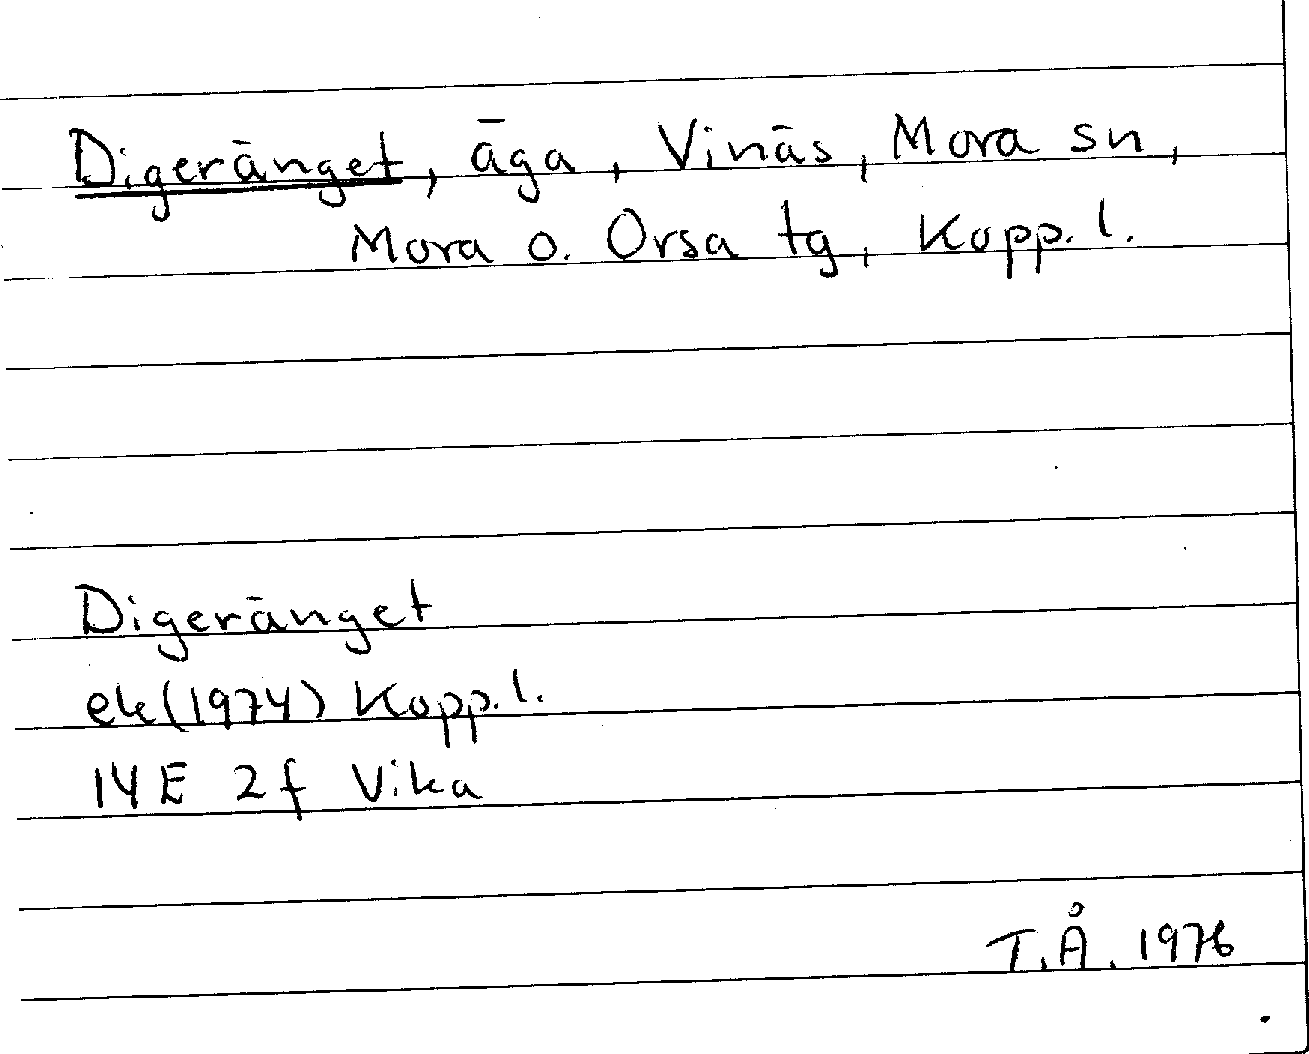 Digeränget, äga, Vinäs, Mora sn,
Mora o. Orsa tg, Kopp. l.
Digeränget
ek(1974) Kopp. l.
14E 2f Vika
T.Å. 1976